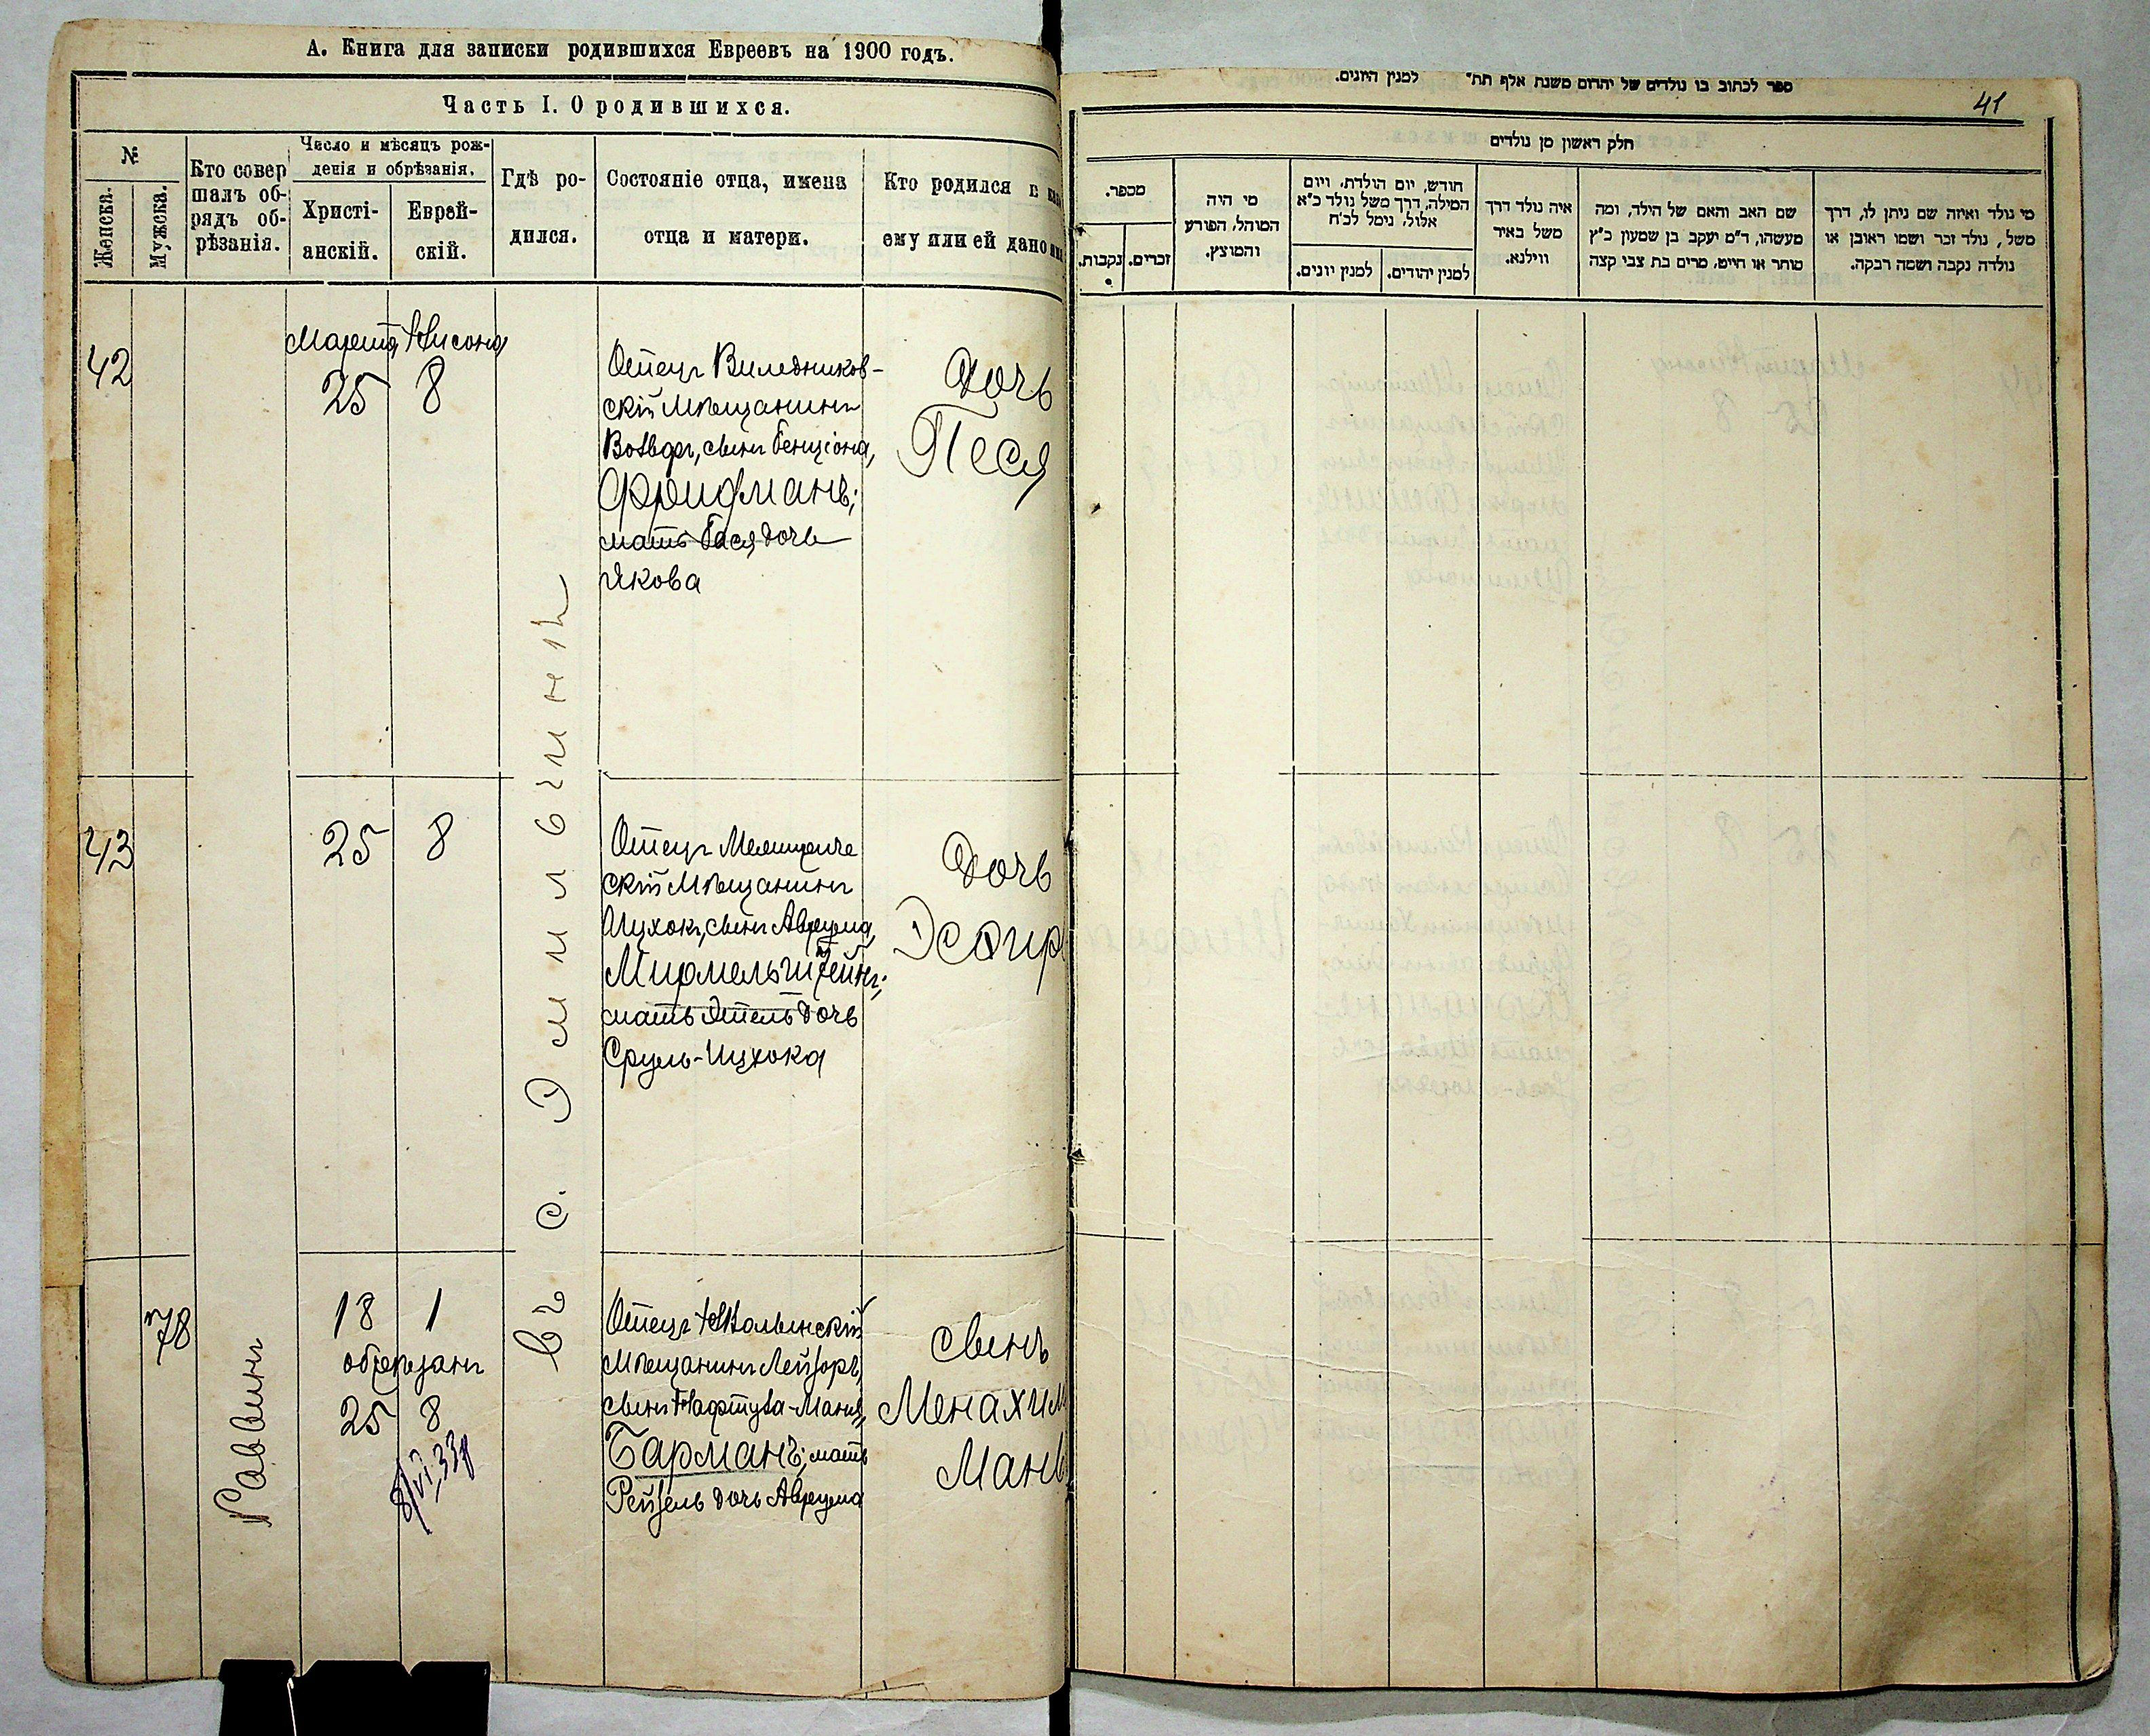 А. Книга для записки родившихся Евреевъ на 1900 годъ.
Часть I. О родившихся.
№
Женска.
Мужска.
Кто совер
шалъ об-
рядъ об-
рѣзанія.
Число и мѣсяцъ рож-
денія и обрѣзанія.
Христі-
анскій.
Еврей-
скій.
Гдѣ ро-
дился.
Состояніе отца, имена
отца и матери.
Кто родился и
ему или ей дано
42
Марта Нисона
25 8
Отецъ Виледников-
скій Мѣщанинъ
Вольфъ, сынъ Бенціона,
Фридманъ;
мать Бася дочь
Якова
Дочь
Песя
43
25 8
Отецъ
скій Мѣщанинъ
Ицхокъ, сынъ Аврума,
Мирмельштейнъ;
мать Этель дочь
Сруль-Ицхока
Дочь
Эсѳир
78
Раввинъ
18 1
обрѣзанъ
25 8
8/VI 33
Въ с. Эмильчинѣ
Отецъ
Мѣщанинъ Лейзоръ,
сынъ Нафтула-Маня,
Барманъ; мать
Рейзель дочь Аврума
сынъ
Менахим
Мань
ספר לכתוב בו נולדים של יהודים משנת אלף תת״ למנין היונים.
41
חלק ראשון מן נולדים
מספר.
נקבות.
זכרים.
מי היה
המוהל, הפורע
והמוצץ.
חודש, יום הולדת, ויום
המילה, דרך משל נולד כ״א
אלול, נימל לכ״ח
למנין יונים.
למנין יהודים.
איה נולד דרך
משל באיר
ווילנא.
שם האב והאם של הילד, ומה
מעשהו, ד״מ יעקב בן שמעון כ״ץ
סוחר או חייט, מרים בת צבי קצה
מי נולד ואיזה שם ניתן לו, דרך
משל, נולד זכר ושמו ראובן או
נולדה נקבה ושמה רבקה.